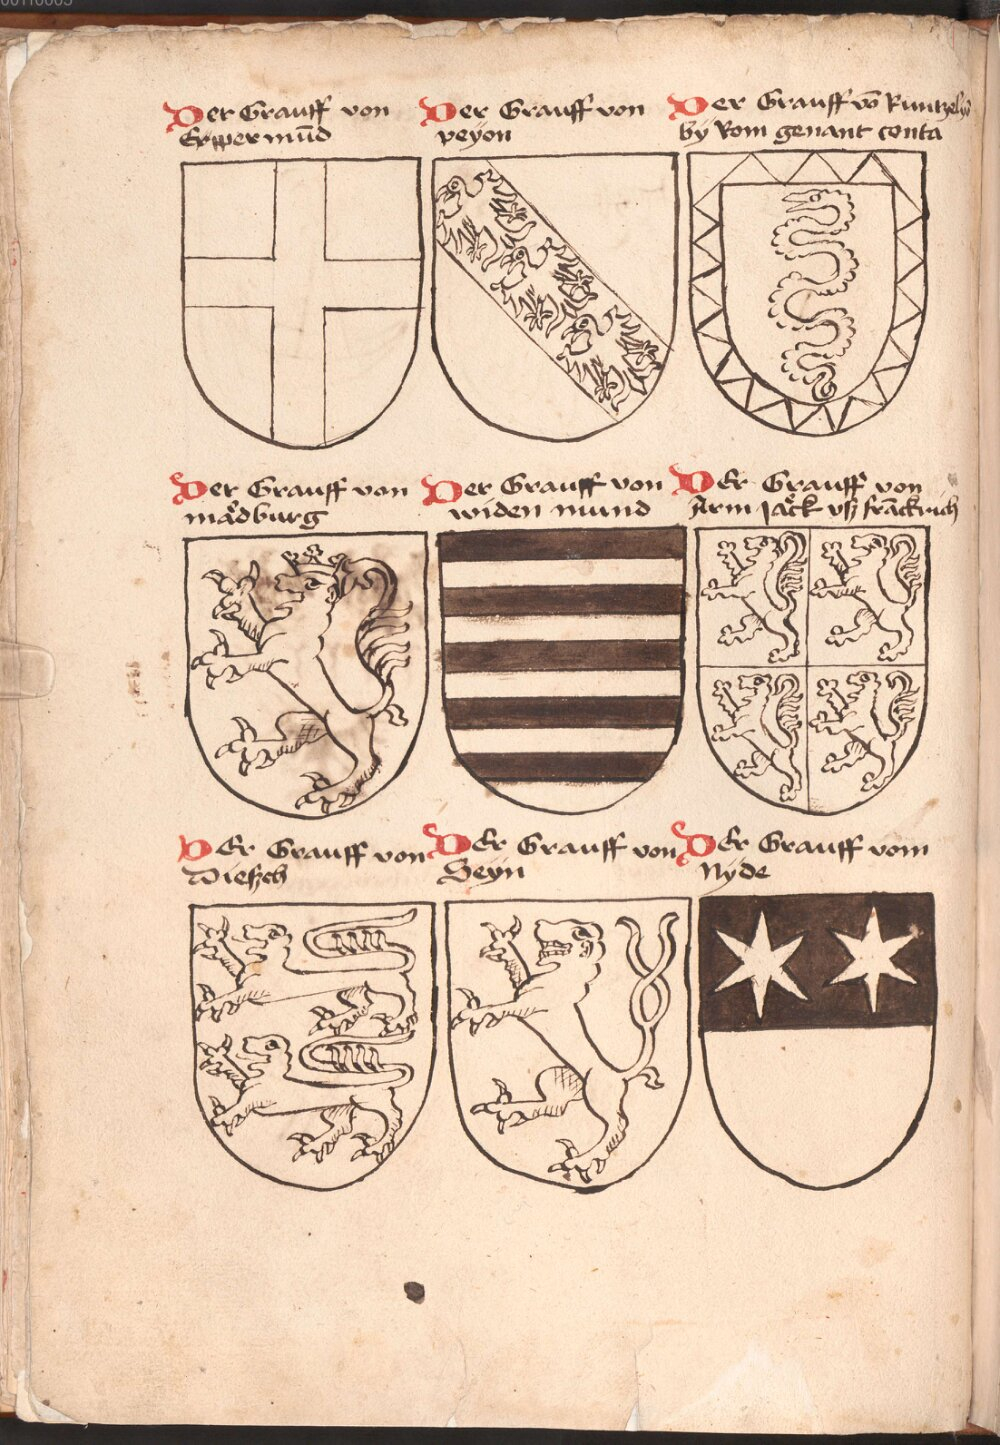 Der Grauff von
Eppermūd
Der Grauff von
peyon
Der Grauff vō
by Rom genant conta
Der Grauff von
madburg
Der Grauff von
widen mund
DEr Grauff von
Arm Jack vsz franckrich
DEr Grauff von
Dieszch
DEr Grauff von
Seyn
DEr Grauff vom
Nyde